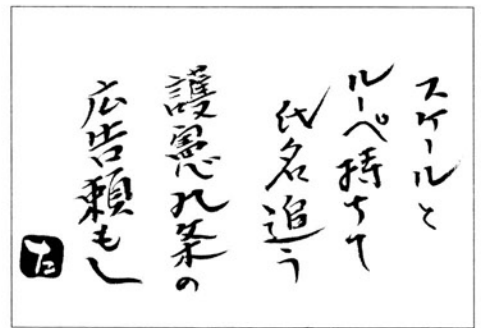 スケールと
ルーペ持ちて
氏名追う
護憲九条の
広告頼もし
た